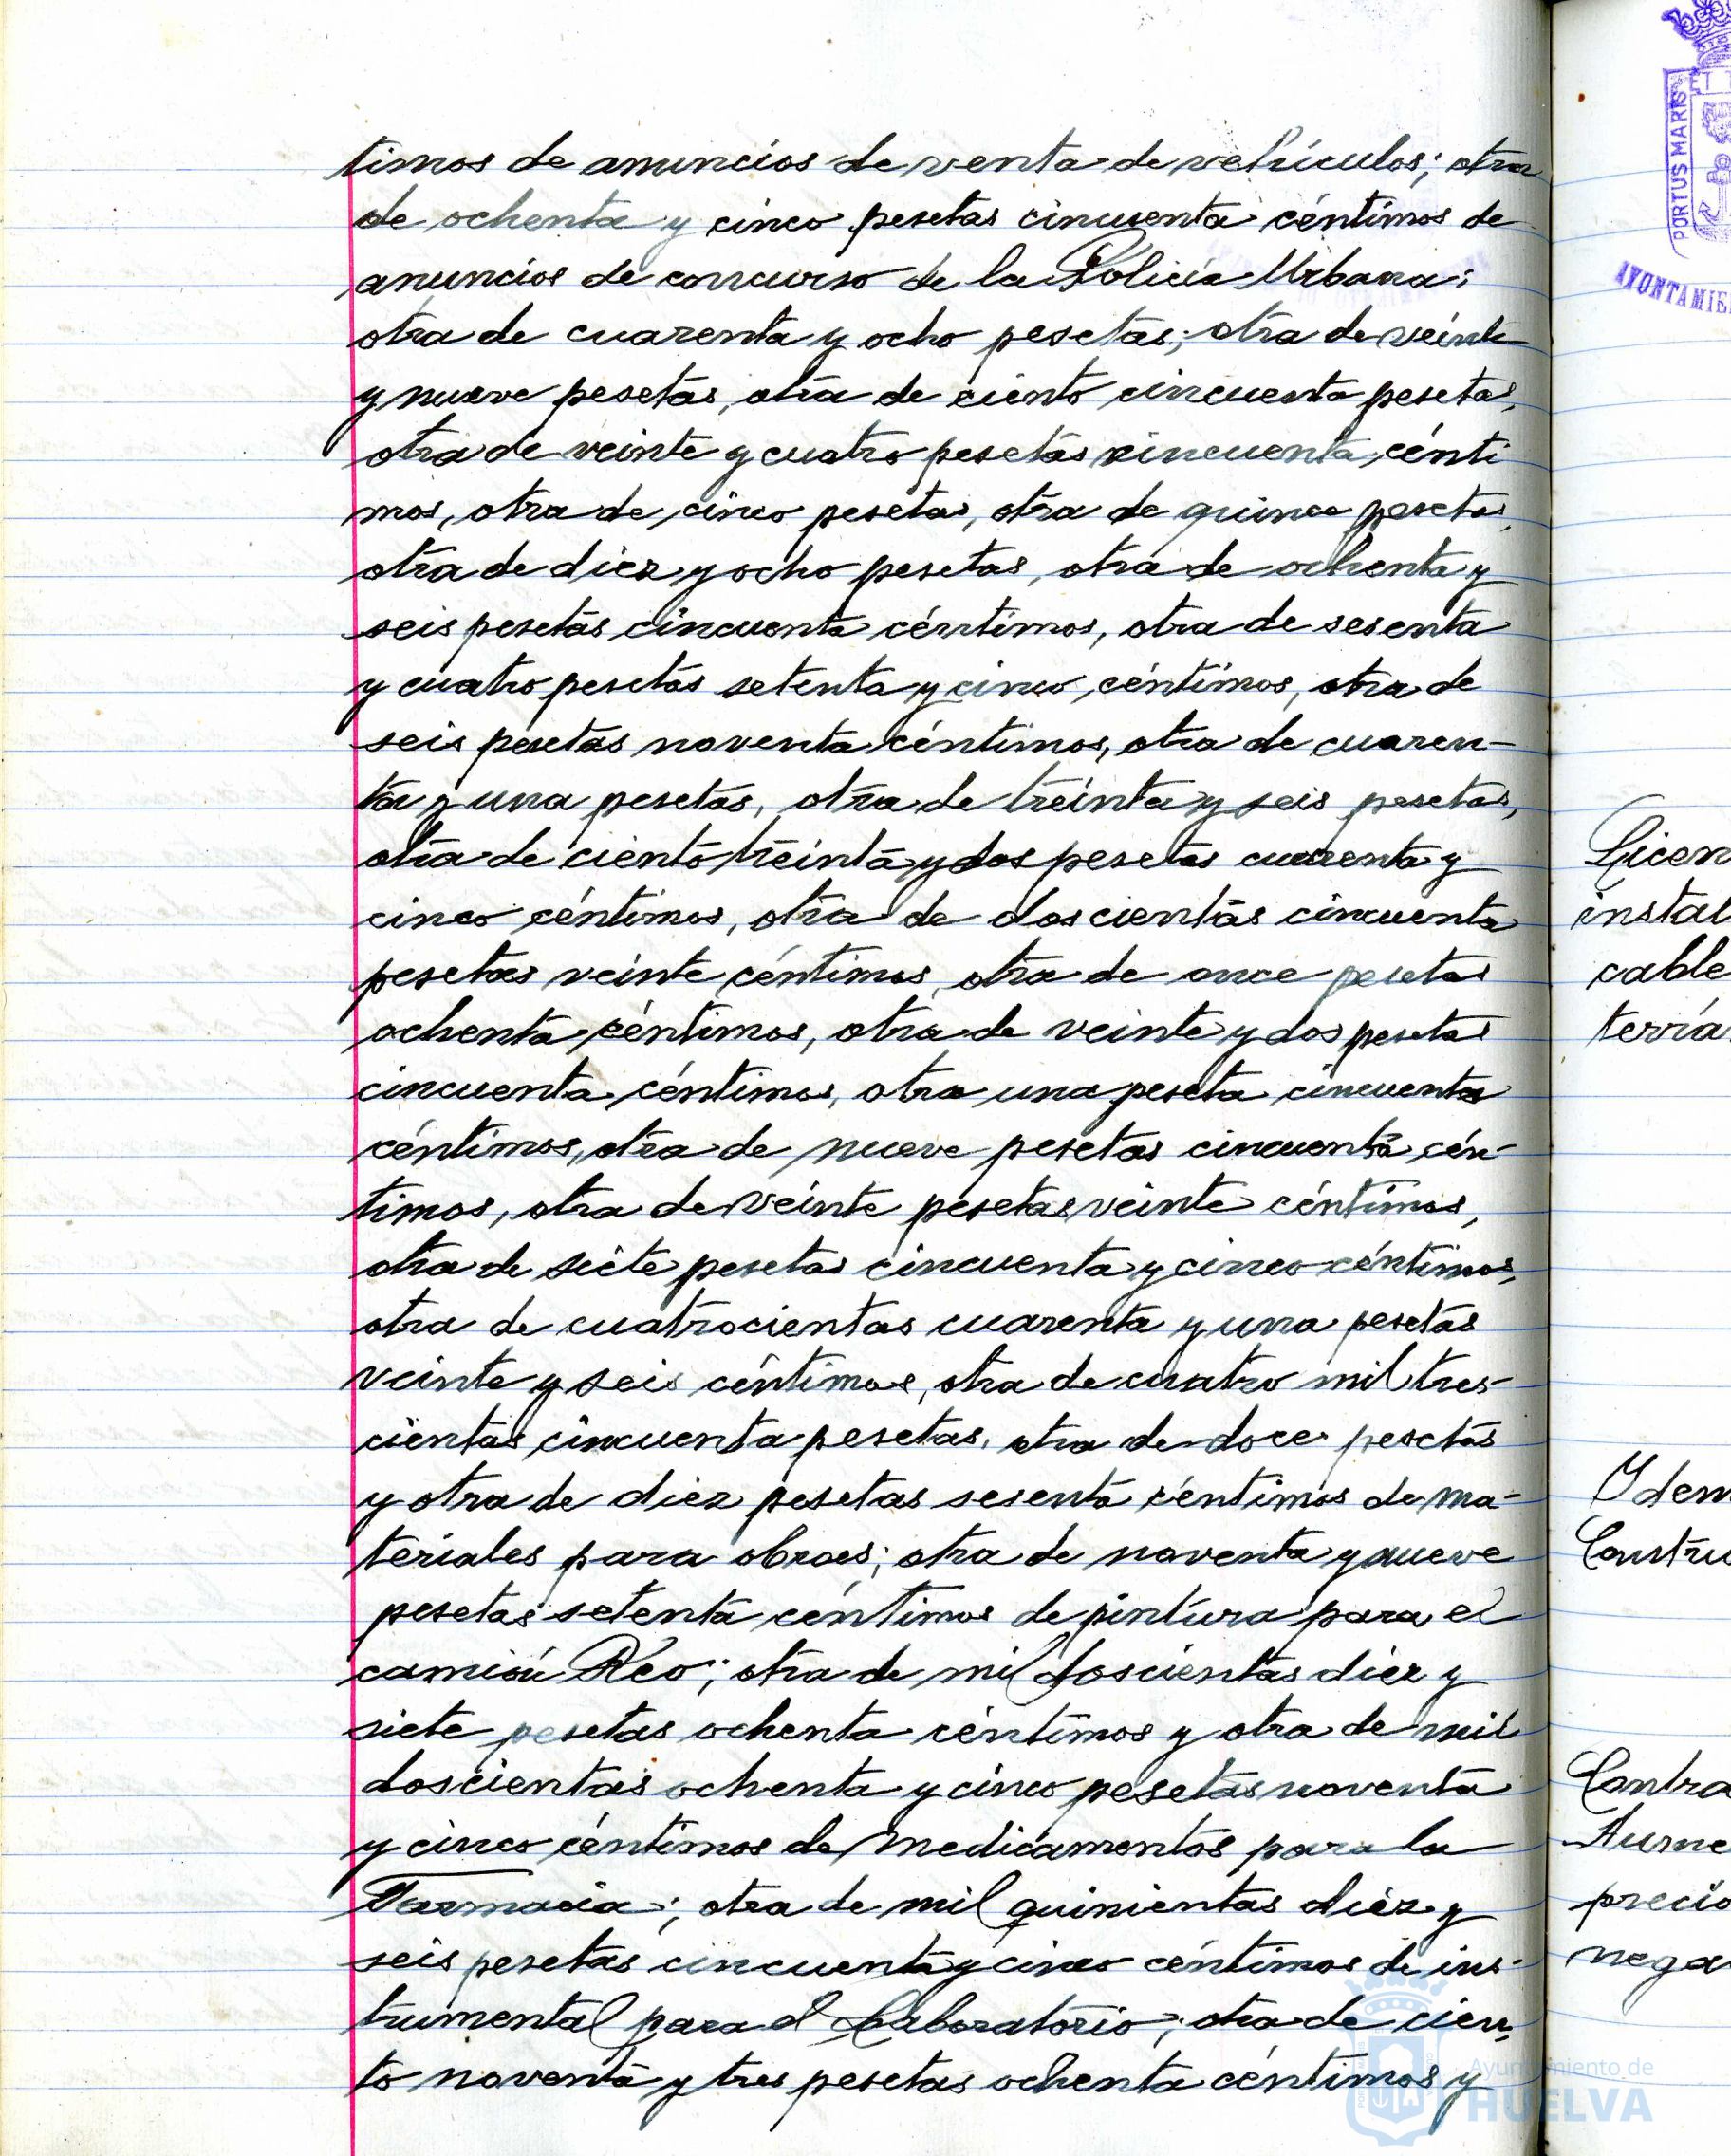 timos de anuncios de venta de vehículos; otra
de ochenta y cinco pesetas cincuenta céntimos de
anuncios de concurso de la Policía Urbana;
otra de cuarenta y ocho pesetas; otra de veinte
y nueve pesetas, otra de ciento cincuenta pesetas,
otra de veinte y cuatro pesetas cincuenta cénti
mos, otra de cinco pesetas, otra de quince pesetas,
otra de diez y ocho pesetas, otra de ochenta y
seis pesetas cincuenta céntimos, otra de sesenta
y cuatro pesetas setenta y cinco céntimos, otra de
seis pesetas noventa céntimos, otra de cuaren-
ta y una pesetas, otra de treinta y seis pesetas,
otra de ciento treinta y dos pesetas cuarenta y
cinco céntimos, otra de doscientas cincuenta
pesetas veinte céntimos, otra de once pesetas
ochenta céntimos, otra de veinte y dos pesetas
cincuenta céntimos, otra una peseta cincuenta
céntimos, otra de nueve pesetas cincuenta cén-
timos, otra de veinte pesetas veinte céntimos,
otra de siete pesetas cincuenta y cinco céntimos,
otra de cuatrocientas cuarenta y una pesetas
veinte y seis céntimos, otra de cuatro mil tres-
cientas cincuenta pesetas, otra de doce pesetas
y otra de diez pesetas sesenta céntimos de ma-
teriales para obras; otra de noventa y nueve
pesetas setenta céntimos de pintura para el
camión Reo; otra de mil doscientas diez y
siete pesetas ochenta céntimos y otra de mil
doscientas ochenta y cinco pesetas noventa
y cinco céntimos de medicamentos para la
Farmacia; otra de mil quinientas diez y
seis pesetas cincuenta y cinco céntimos de ins-
trumental para el Laboratorio; otra de cien-
to noventa y tres pesetas ochenta céntimos y
PORTUS MARIS ET T
AYONTAMIE
Licen
instal
cable
terría
Idem
Constru
Contra
Aume
precio
nega
Ayuntamiento de
HUELVA